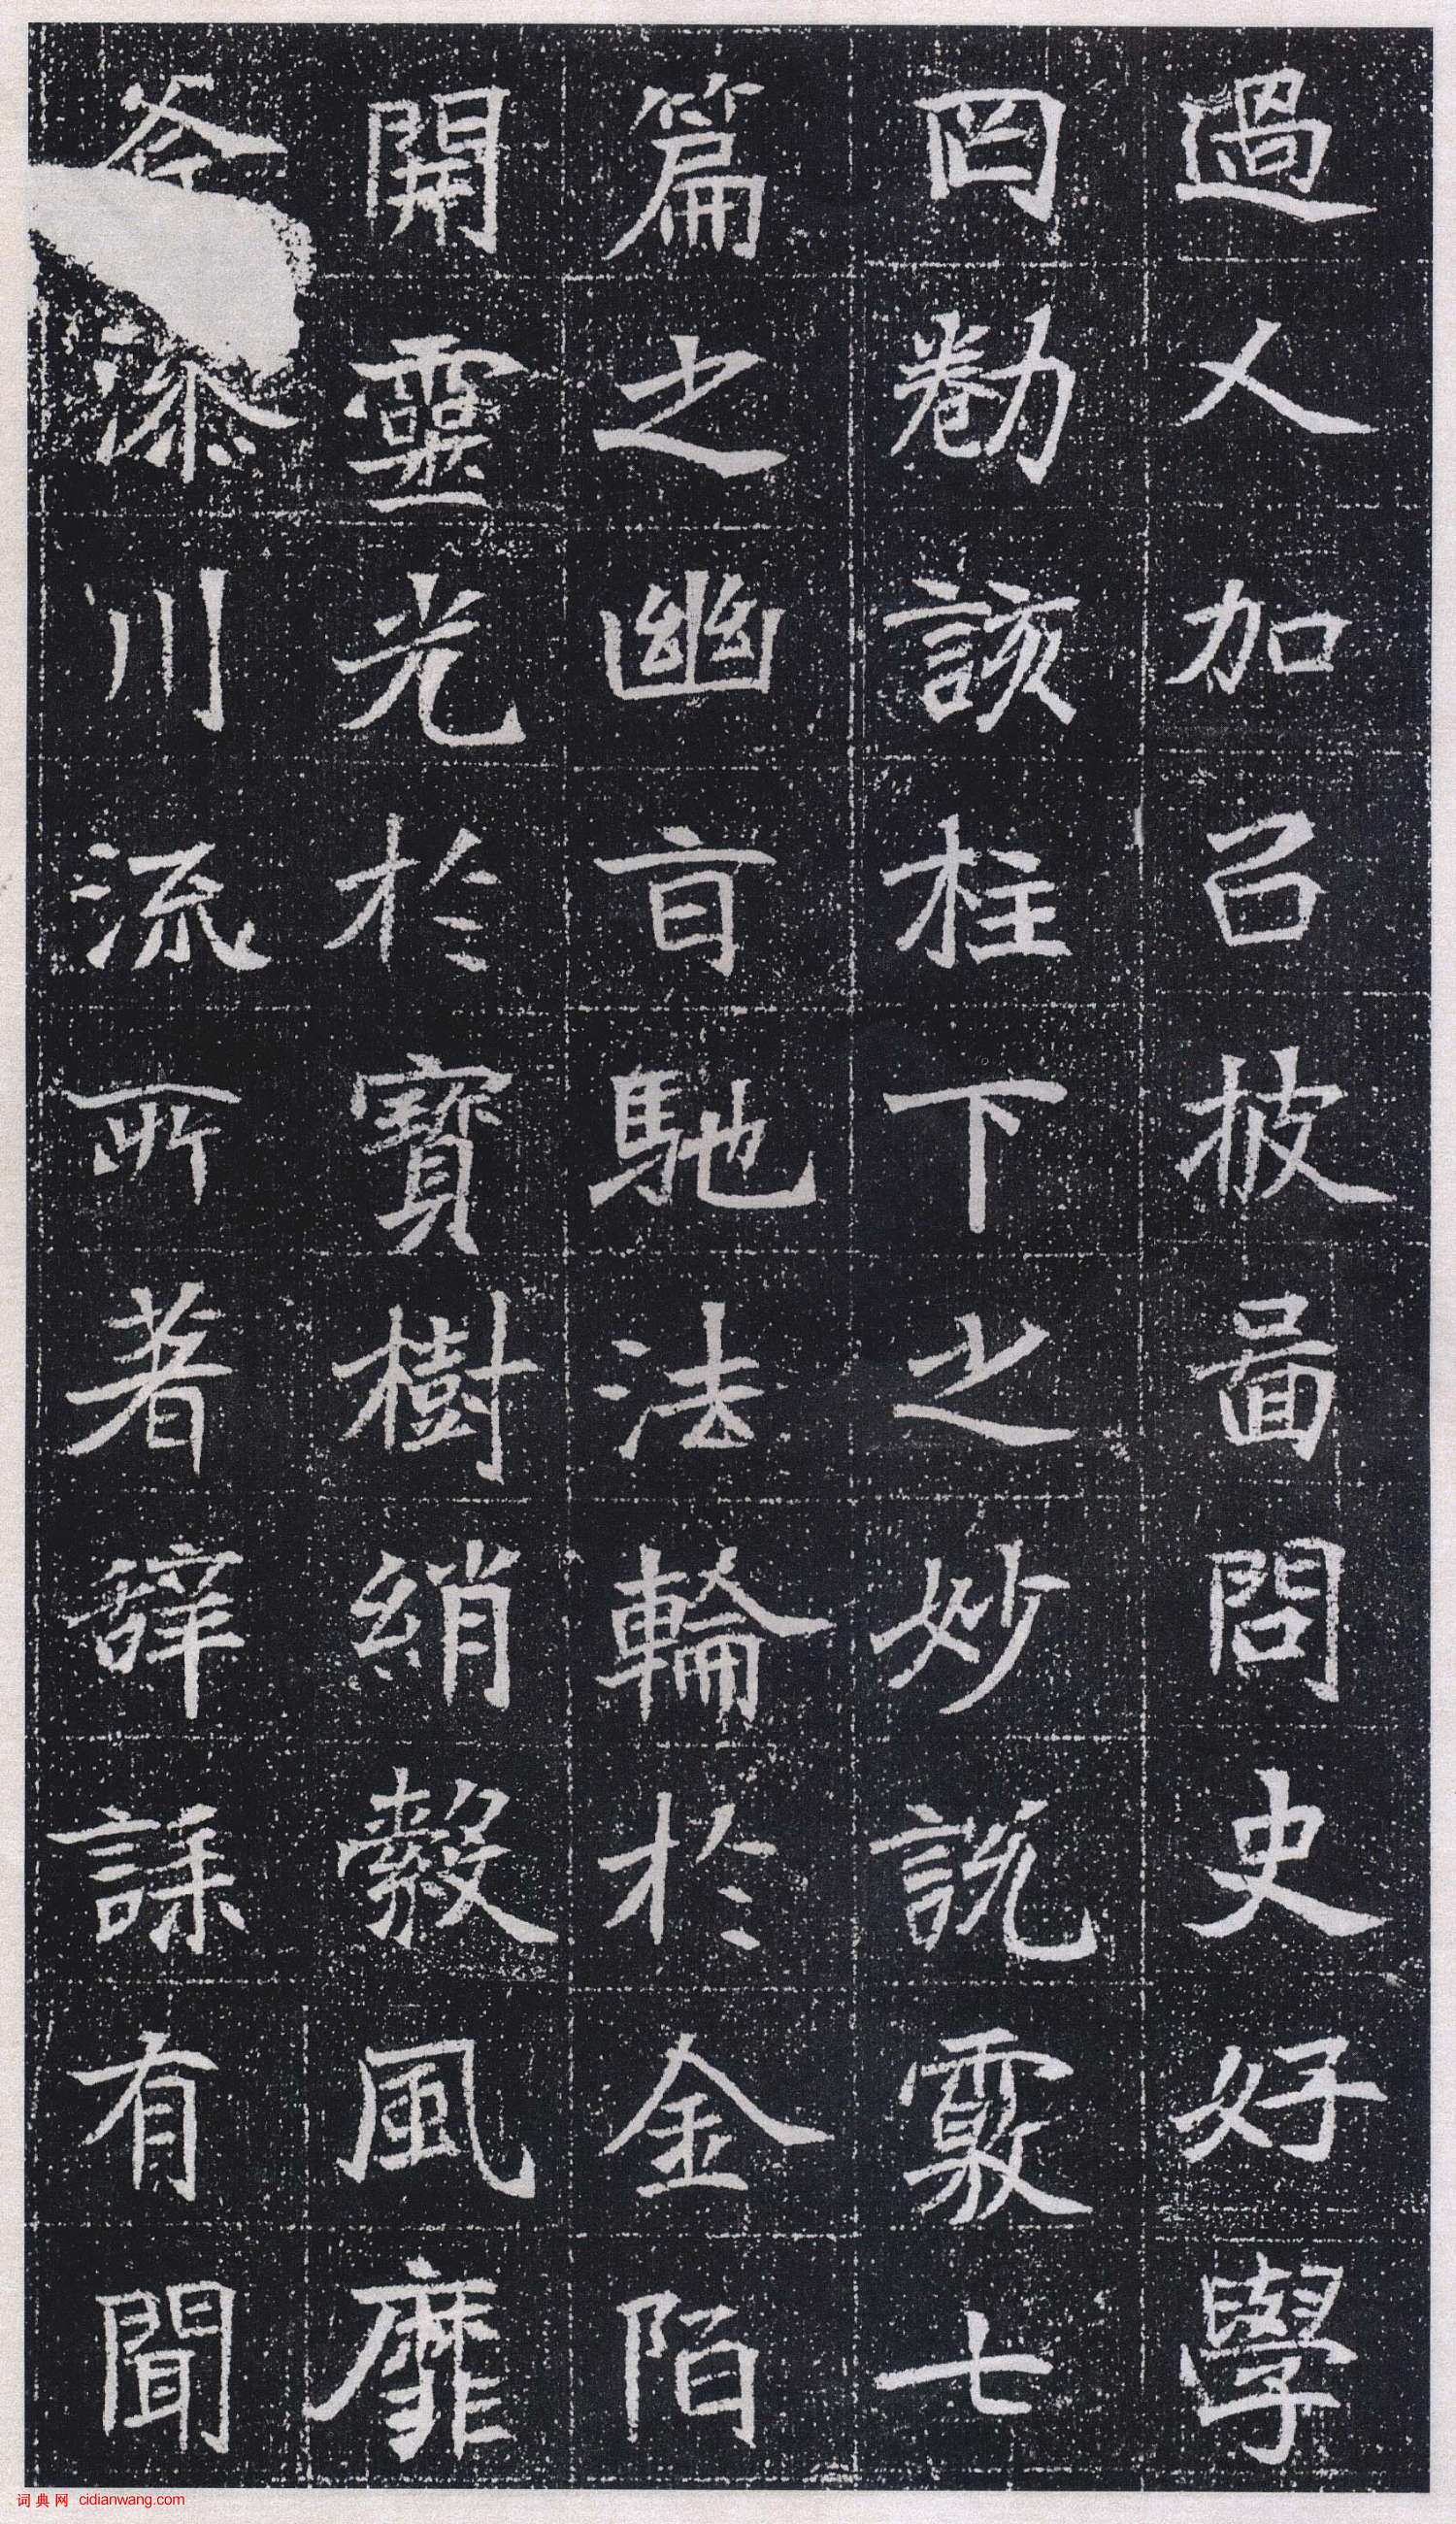 過人加㠯披啚問史好學
罔勌該柱下之妙說覈七
篇之幽旨馳法輪於金陌
開靈光於寶樹綃縠風靡
川流所著辭誄有聞
词典网 cidianwang.com